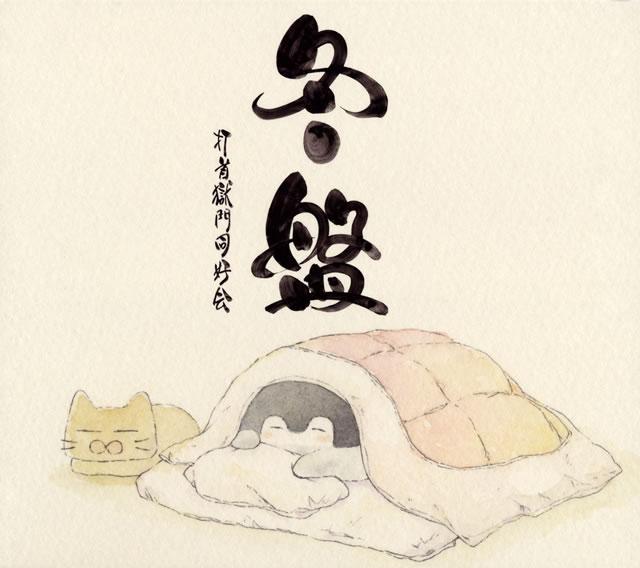 冬盤
打首獄門同好会